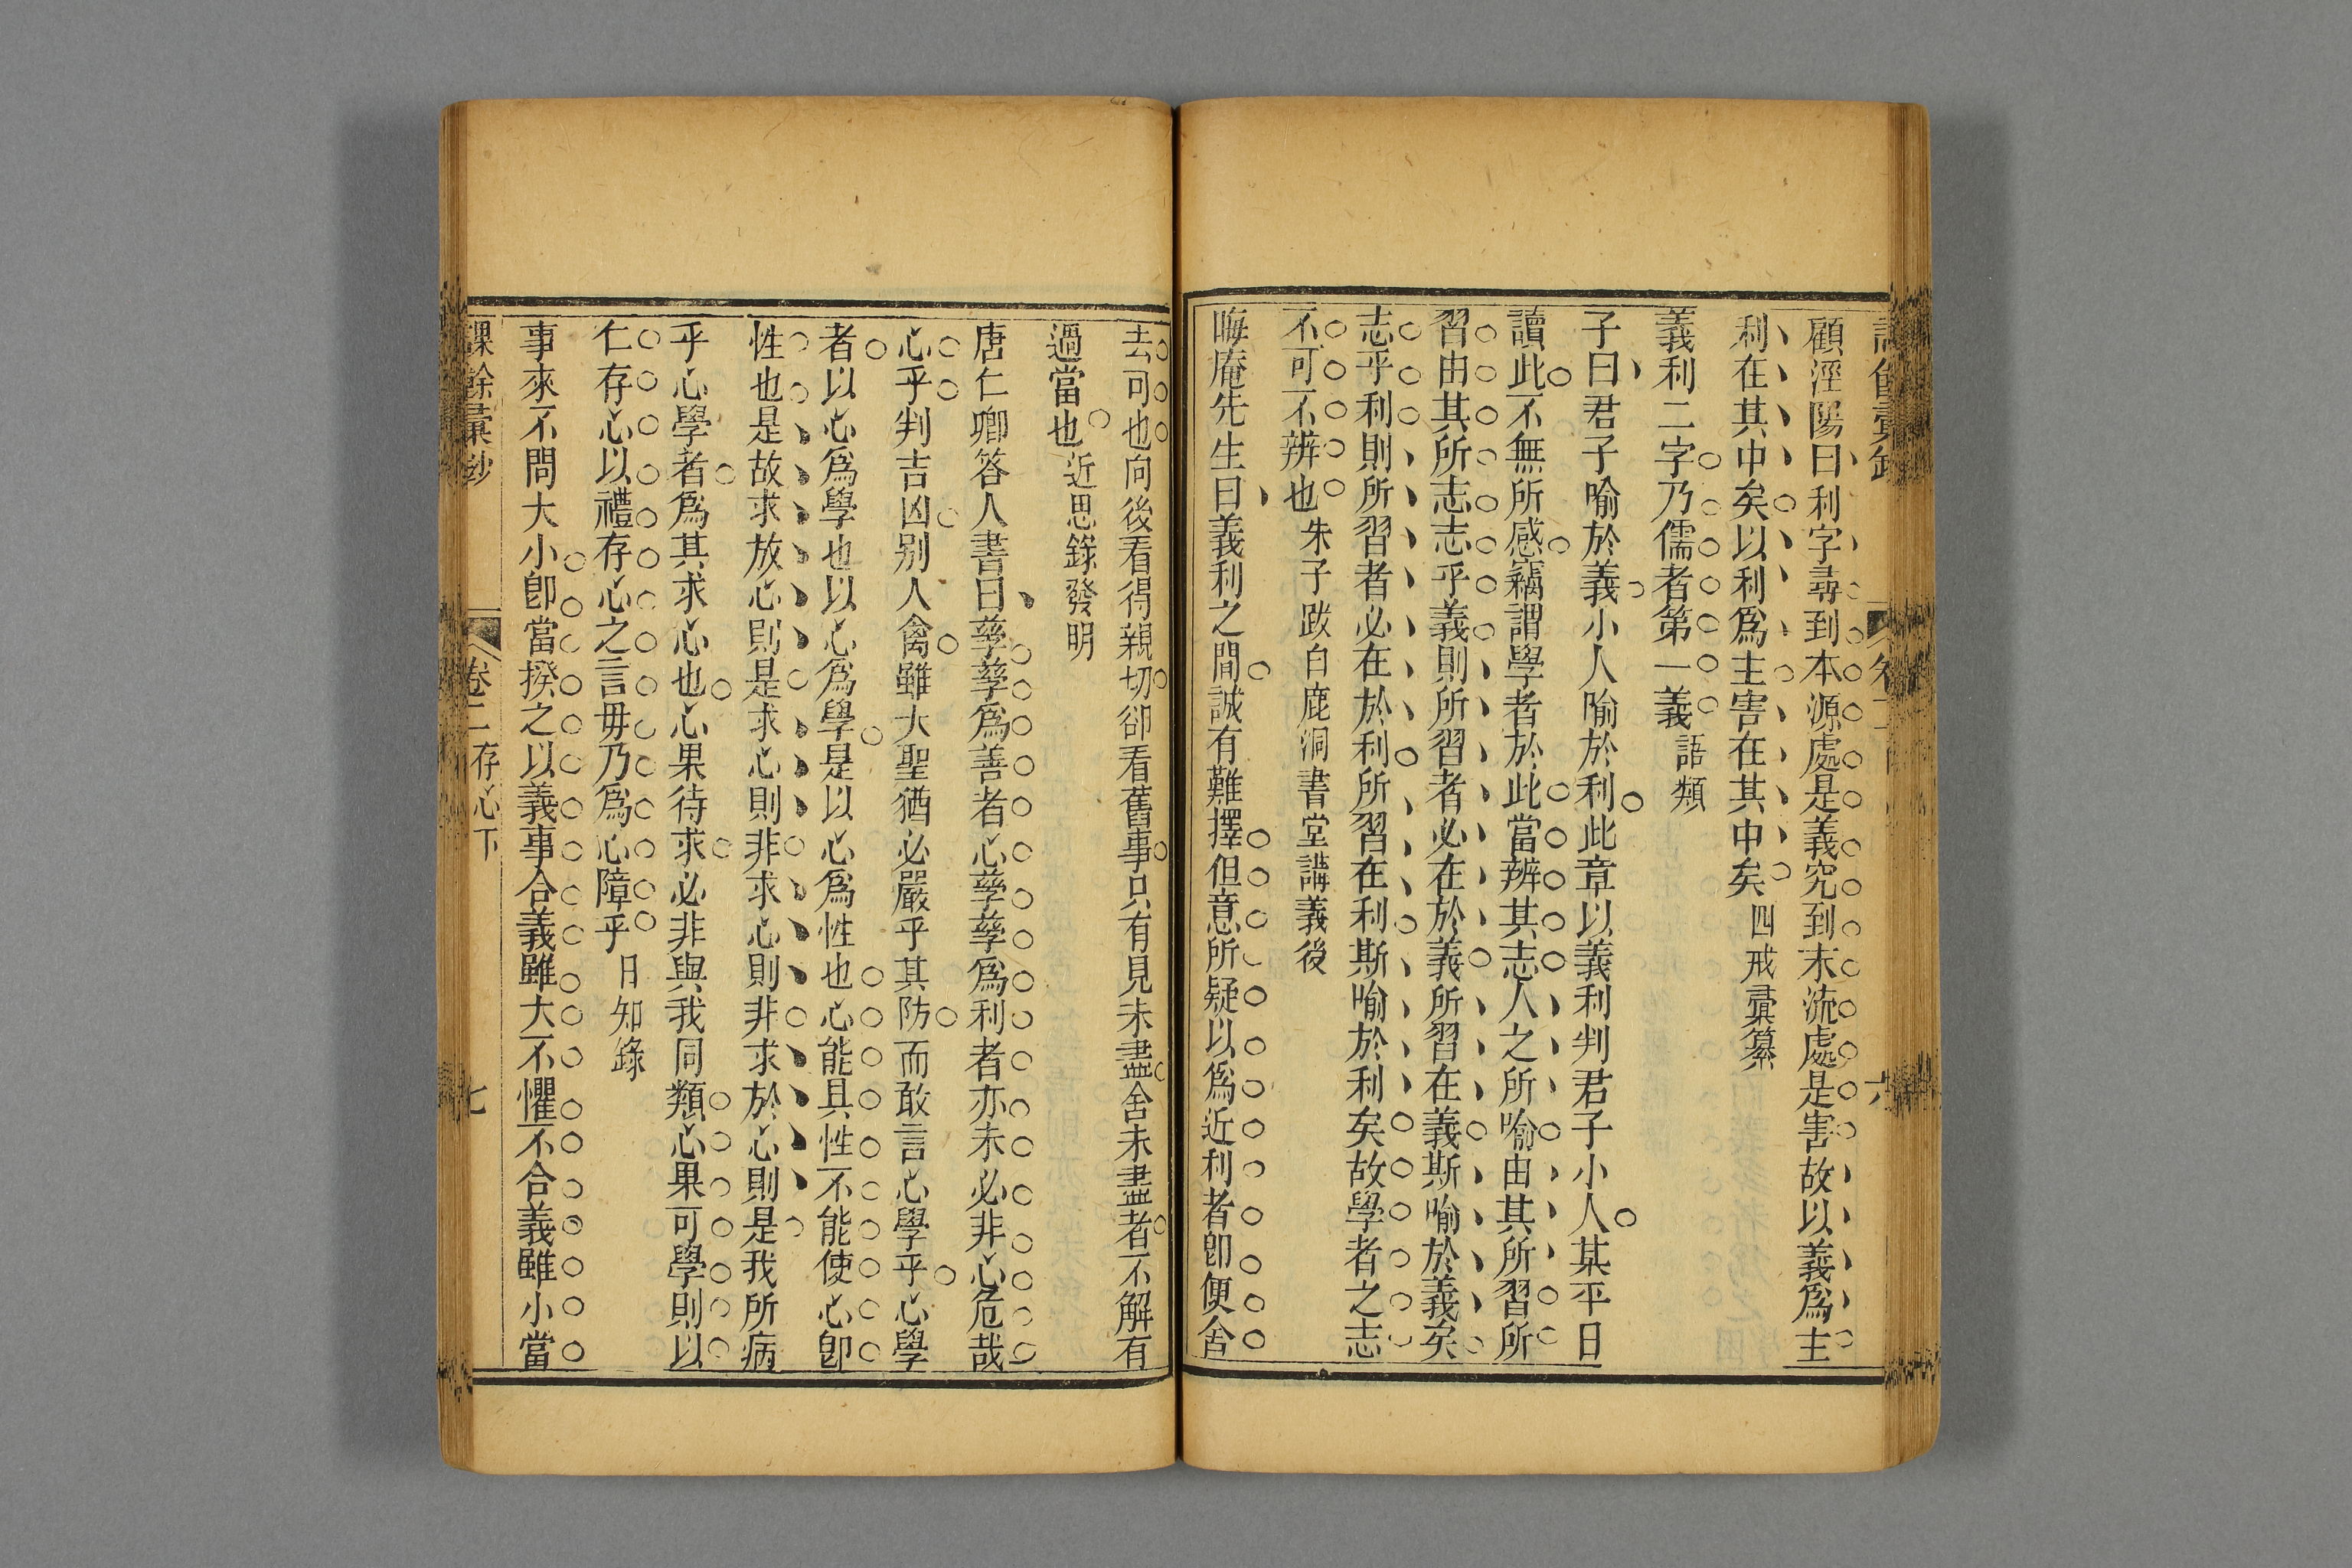 顧涇陽曰利字尋到本源處是義究到末流處是害故以義爲主
利在其中矣以利爲主害在其中矣四戒彚纂
義利二字乃儒者第一義語類
子曰君子喻於義小人喻於利此章以義利判君子小人某平日
讀此不無所感竊謂學者於此當辨其志人之所喻由其所習所
習由其所志志乎義則所習者必在於義所習在義斯喻於義矣
志乎利則所習者必在於利所習在利斯喻於利矣故學者之志
不可不辨也朱子跋白鹿洞書堂講義後
晦庵先生曰義利之間誠有難擇但意所疑以爲近利者卽便舍
去可也向後看得親切卻看舊事只有見未盡舍未盡者不解有
過當也近思錄發明
唐仁卿答人書曰孳孳爲善者心孳孳爲利者亦未必非心危哉
心乎判吉凶别人禽雖大聖猶必嚴乎其防而敢言心學乎心學
者以心爲學也以心爲學是以心爲性也心能具性不能使心卽
性也是故求放心則是求心則非求心則非求於心則是我所病
乎心學者爲其求心也心果待求必非與我同類心果可學則以
仁存心以禮存心之言毋乃爲心障乎日知錄
事來不問大小卽當揆之以義事合義雖大不懼不合義雖小當
課餘彚鈔
卷二 存心下
七